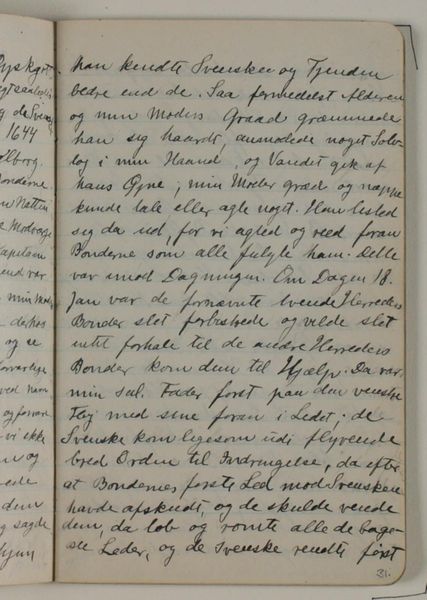 han kendte Svensken og Fjenden
bedre end de. Saa formedelst Alderen
og min Moders Graad græmmede
han sig haardt, ansmølede noget Solv-
tøj i min Haand, og Vandet gik af
hans Øjne; min Moder græd og neppe
kunde tale eller agte noget. Han listed
sig da ud, for vi agted og reed foran
Bønderne som alle fulgte ham. Dette
var imod Dagningen. Om Dagen 18.
Jan var de fornævnte tvende Herreders
Bønder slet forbistrede og vilde slet
intet forhale til de andre Herreders
Bønder kom dem til Hjælp. Da var
min sal. Fader først paa den venstre
Fløj med sine foran i Ledet; de
Svenske kom ligesom udi flyvende
bred Orden til Indtrængelse, da efter
at Bøndernes første Led mod Svensken
havde afskudt, og de skulde vende
dem, da løb og rømte alle de bage-
ste Leder, og de Svenske rendte først
31.
Pyskjøt,
1644
Aalborg.
Bønderne
Natten
Kapitain
end var
min Moder
og se
ved ham
og foran
vi ikke
og
dem
og sagde